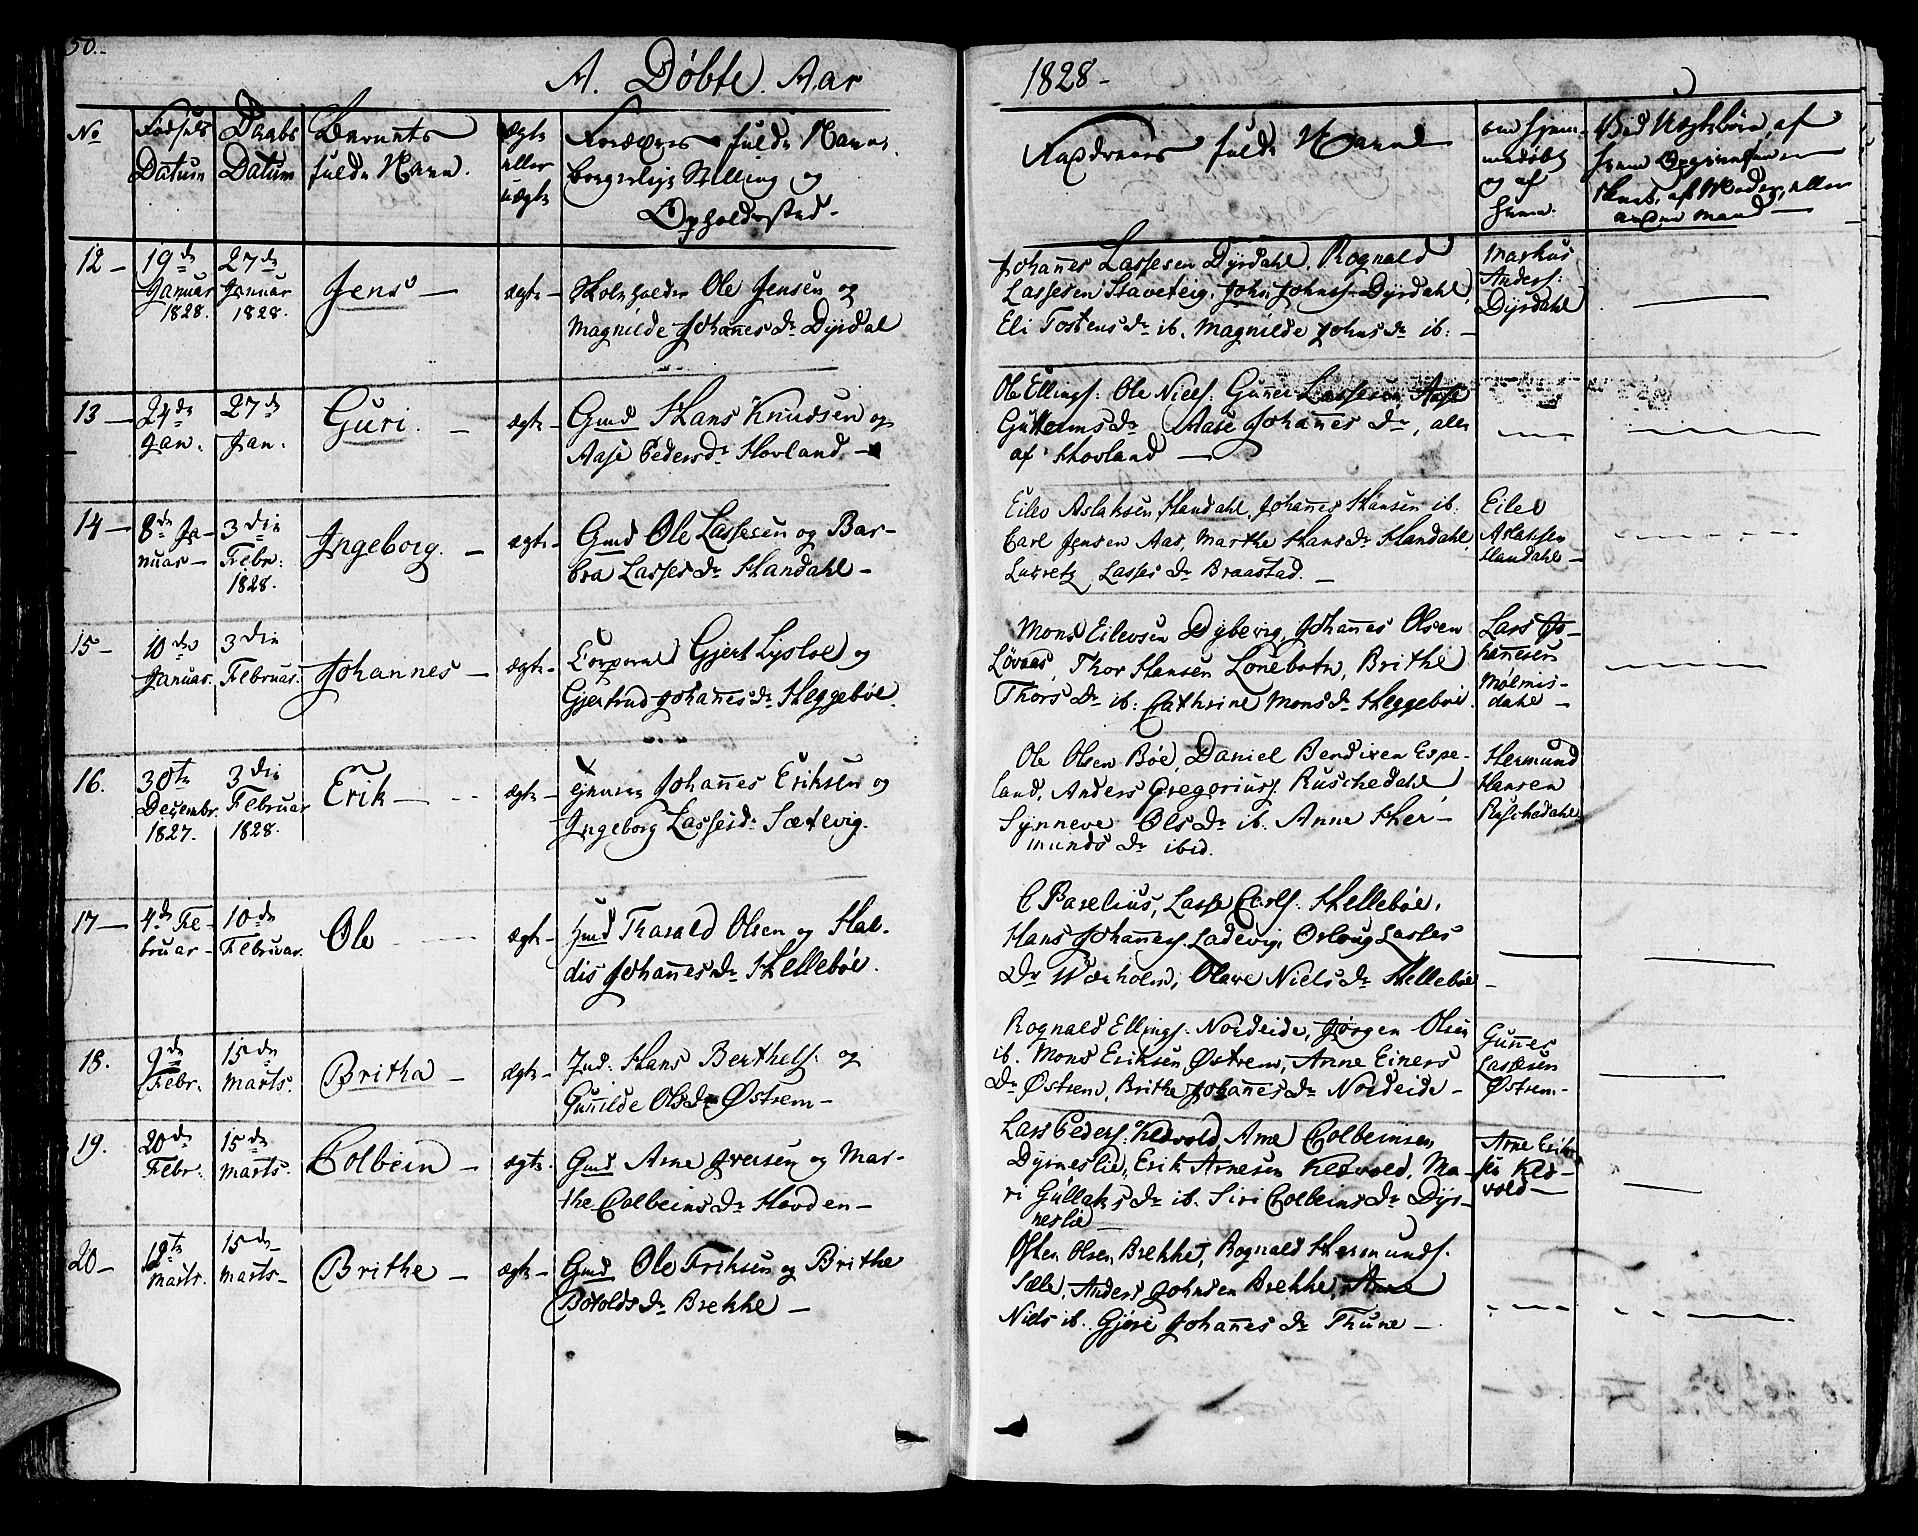 50.
A. Døbte. Aar 1828-
No
Fødsels Datum
Daabs Datum
Barnets fulde Navn.
ægte eller uægte
Forældres fulde Navne.
borgerlige Stilling og
Opholdssted.
Faddernes fulde Navne
om hjem-
medøbt
og af
hvem.
Ved Uægtebørn, af
12 - 19de Januar 1828. 27de Januar 1828. Jens - ægte -
Skoleholder Ole Jensen og
Magnilde Johannes Dr Dyrdal
Johannes Lassesen Dyrdahl, Rognald
Lassesen Staveteig, John Johns. Dyrdahl,
Eli Tostens Dr ib. Magnilde Johns Dr ib: -
Markus
Anders:
Dyrdahl
13 - 24de Jan. 27de Jan. Guri. - ægte -
Gmd Hans Knudsen og
Aase Peders Dr Hovland -
Ole Ellings: Ole Niels: Gunner Lassesen Aase
Guttorms Dr Aase Johannes Dr, alle
af Hovland -
14 - 8de Ja-
nuar - 3die Febr: 1828. Ingeborg. - ægte -
Gmd Ole Lassesen og Bar-
bra Lasses Dr Handahl -
Eilev Aslaksen Handahl, Johannes Hansen ib.
Carl Jensen Aas, Marthe Hans Dr Handahl,
Lucretz Lasses Dr Braastad. -
Eilev
Aslaksen
Handahl -
15 - 10de Januar. 3die Februar. Johannes - ægte -
Corporal Gjert Lysloe og
Gjertrud Johannes Dr Heggebøe.
Mons Eilevsen Dybevig, Johannes Olsen
Løvaas, Thor Hansen Lonebotn, Brithe
Thors Dr ib: Cathrine Mons Dr Heggebøe.
Lars Jo-
hannesen
Mølmis-
dahl -
16. 30te Decembr 1827. 3die Februar 1828. Erik - ægte -
Johannes Eriksen og
Ingeborg Lasses Dr Sætevig.
Ole Olsen Bøe, Daniel Bendixen Espe-
land, Anders Gregorius. Ruschedahl
Synneve Ols Dr ib. Anne Her-
munds Dr ibid.
Hermund
Hansen
Ruschedahl
17 - 4de Fe-
bruar - 10de Februar. Ole - ægte -
Hmd Thorald Olsen og Hal-
dis Johannes Dr Hellebøe.
C Baselius, Lasse Carls. Hellebøe,
Hans Johannes. Ladevig, Orloug Lasses
Dr Værholm, Olave Niels Dr Hellebøe -
18. 9de Febr. 15de Marts. Britha - ægte -
Ind: Hans Berthels: og
Gunilde Ols Dr Østrem -
Rognald Ellings. Nordeide, Jørgen Olsen
ib. Mons Eriksen Østrem, Anne Einers
Dr Østrem, Brithe Johannes Dr Nordeide -
Gunner
Lassesen
Østrem -
19. 20de Febr: 15de Marts. Colbein - ægte -
Gmd Arne Iversen og Mar-
the Colbeins Dr Hovden -
Lars Peders: Kldvold, Arne Colbeinsen
Dyrneslie, Erik Arnesen Kldvold, Ma-
ri Gullaks Dr ib. Siri Colbeins Dr Dyr-
neslie
Arne Erik-
sen Kld-
vold -
20 - 12te Marts. 15de Marts - Brithe - ægte -
Gmd Ole Eriksen og Brithe
Botolds Dr Brekke -
Østen Olsen Brekke, Rognald Hermunds.
Sæle, Anders Johnsen Brekke, Anne
Niels ib. Gjøri Johannes Dr Thune -